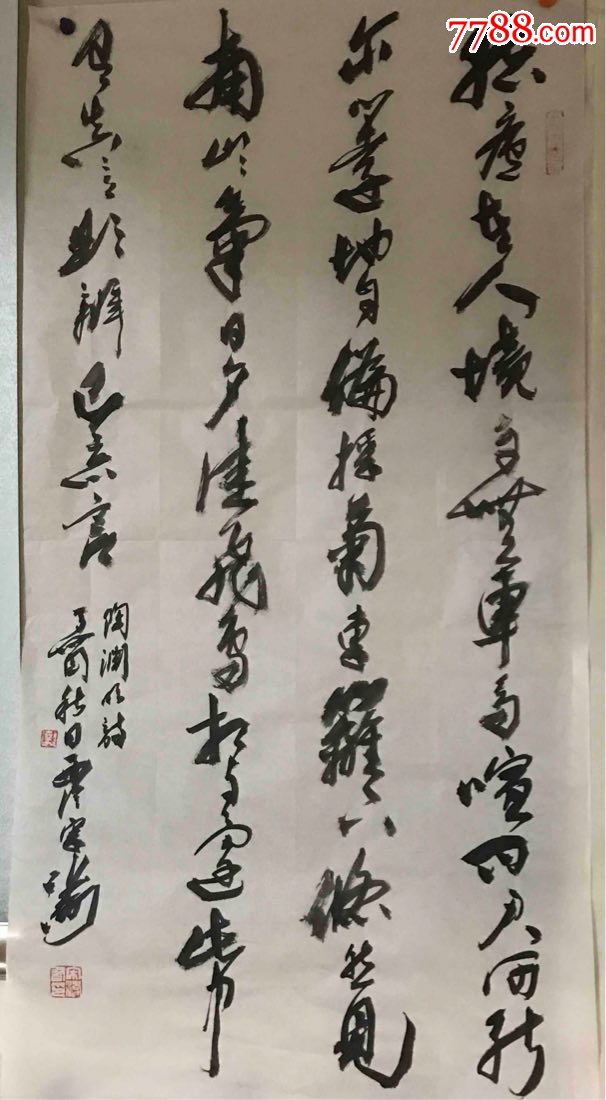 7788.com
結廬在人境而無車馬喧問君何能
爾心遠地自偏採菊東籬下悠然見
南山〻氣日夕佳飛鳥相與還此中
有真意欲辨已忘言
陶淵明詩
丁酉秋日